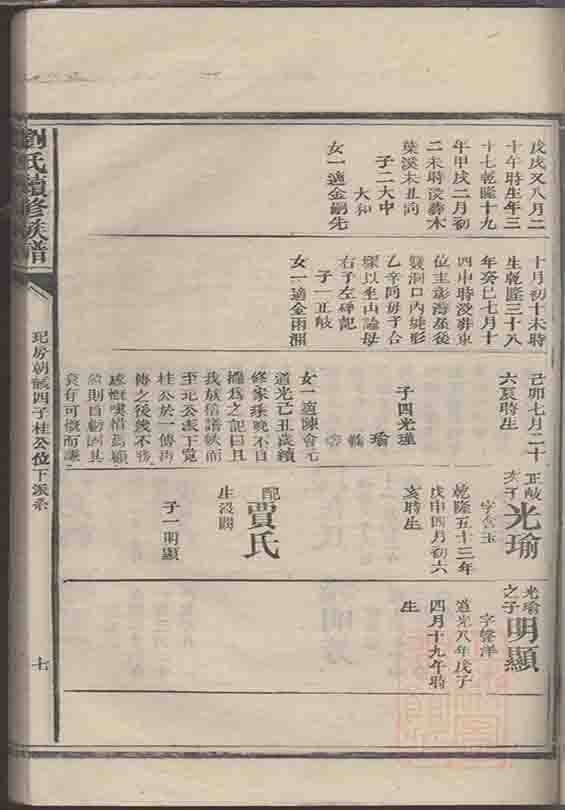 戊戌又八月二
十午時生年三
十七乾隆十九
年甲戌二月初
二未時没葬木
葉溪未丑向
子二大中
大和
女一適金嗣先
十月初十未時
生乾隆三十八
年癸巳七月十
四申時没葬東
位主彭海壘後
雙洞口內
乙辛向毋子合
以坐山論母
右子左碑記
子一正岐
女一適金雨
己卯七月二十
六亥時生
子四光瑾
瑜
女一適陳會元
道光己丑歲續
修家珠晚不自
揣爲之記曰且
我族信譜帙而
至北公表下寬
桂公於一傳再
傳之後幾不務
感慨嘆惜焉顧
則自
衰有可徵而謙
正岐
次子
光瑜
字含玉
乾隆五十三年
戊申四月初六
亥時生
配
賈氏
生没闕
子一明顯
光瑜
之子
明顯
字聲洋
道光八年戊子
四月十九午時
生
劉氏續修族譜
玘房朝誠四子桂公位下派系
七